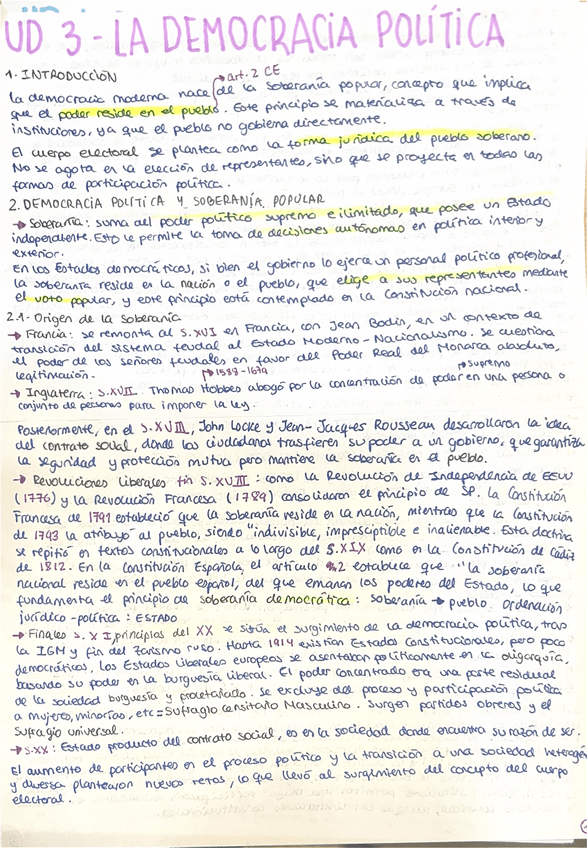 UD 3 - LA DEMOCRACIA POLÍTICA
1. INTRODUCCIÓN
art. 2 CE
La democracia moderna nace de la soberanía popular, concepto que implica
que el poder reside en el pueblo. Este principio se materializa a través de
instituciones, ya que el pueblo no gobierna directamente.
El cuerpo electoral se plantea como la forma jurídica del pueblo soberano.
No se agota en la elección de representantes, sino que se proyecta en todas las
formas de participación política.
2. DEMOCRACIA POLÍTICA Y SOBERANÍA POPULAR
→ Soberanía: suma del poder político supremo e ilimitado, que posee un Estado
independiente. Esto le permite la toma de decisiones autónomas en política interior y
exterior.
En los Estados democráticos, si bien el gobierno lo ejerce un personal político profesional,
la soberanía reside en la nación o el pueblo, que elige a sus representantes mediante
el voto popular, y este principio está contemplado en la Constitución nacional.
2.1- Origen de la Soberanía
→ Francia: se remonta al S.XVI en Francia, con Jean Bodin, en un contexto de
transición del sistema feudal al Estado Moderno - Nacionalismo. Se cuestiona
el poder de los señores feudales en favor del Poder Real del Monarca absoluto,
legitimación.
1588-1679
supremo
→ Inglaterra: S.XVII. Thomas Hobbes abogó por la concentración de poder en una persona o
conjunto de personas para imponer la ley.
Posteriormente, en el S.XVIII, John Locke y Jean-Jacques Rousseau desarrollaron la idea
del contrato social, donde los ciudadanos trasfieren su poder a un gobierno, que garantiza
la seguridad y protección mutua pero mantiene la soberanía en el pueblo.
→ Revoluciones Liberales fin S.XVIII: como la Revolución de Independencia de EEUU
(1776) y la Revolución Francesa (1789) consolidaron el principio de SP. La Constitución
Francesa de 1791 estableció que la soberanía reside en la nación, mientras que la Constitución
de 1793 la atribuyó al pueblo, siendo "indivisible, imprescriptible e inalienable. Esta doctrina
se repitió en textos constitucionales a lo largo del S.XIX como en la Constitución de Cádiz
de 1812. En la Constitución Española, el artículo 2 establece que "la soberanía
nacional reside en el pueblo español, del que emanan los poderes del Estado, lo que
fundamenta el principio de soberanía democrática: soberanía → pueblo. Ordenación
jurídico-política: ESTADO
→ Finales S.XIX, principios del XX se sitúa el surgimiento de la democracia política, tras
la IGM y fin del Zarismo ruso. Hasta 1914 existían Estados Constitucionales, pero poco
democráticos, los Estados Liberales europeos se asentaban políticamente en la oligarquía,
basando su poder en la burguesía liberal. El poder concentrado era una parte residual
de la sociedad burguesía y proletariado. Se excluye del proceso y participación política
a mujeres, minorías, etc = Sufragio censitario Masculino. Surgen partidos obreros y el
Sufragio universal.
→ S.XX: Estado producto del contrato social, es en la sociedad donde encuentra su razón de ser.
El aumento de participantes en el proceso político y la transición a una sociedad heterogén
y diversa plantearon nuevos retos, lo que llevó al surgimiento del concepto del cuerpo
electoral.